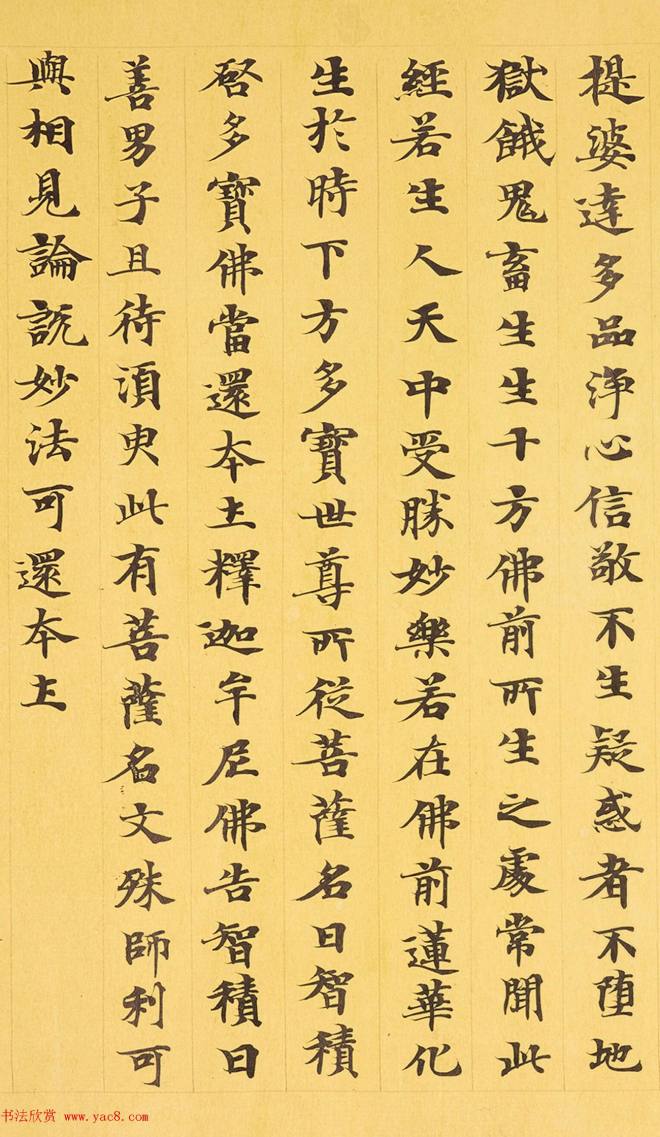 提婆達多品淨心信敬不生疑惑者不墮地
獄餓鬼畜生生十方佛前所生之處常聞此
經若生人天中受勝妙樂若在佛前蓮華化
生於時下方多寶世尊所從菩薩名曰智積
啓多寶佛當還本土釋迦牟尼佛告智積曰
善男子且待須臾此有菩薩名文殊師利可
與相見論說妙法可還本土
书法欣赏 www.yac8.com